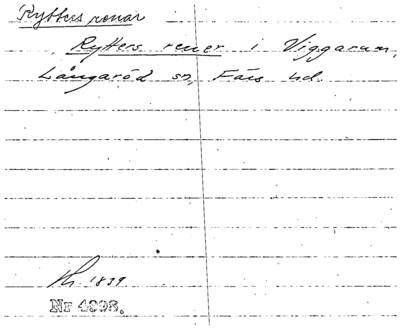 Rytters renar
Rytters rener i Viggarum,
Långaröd sn, Färs hd.
1839
Nr 4898.